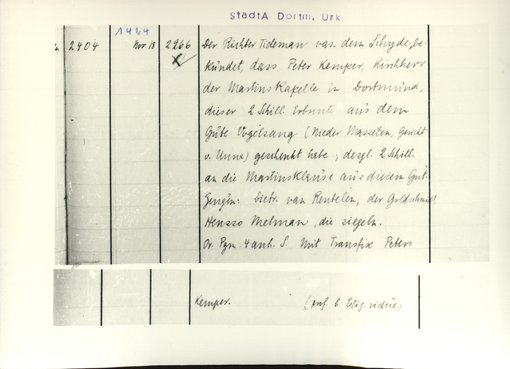 StadtA Dortm. Urk
1424
2404 Nov 18 2266 Der Richter Tideman van dem Schyde, be-
kündet, dass Peter Kemper, Kirchherr
der Martinskapelle in Dortmund,
dieser 2 Schill. aus dem
Gute Vogelsang (Nieder Massen, Gericht
v. Unna) geschenkt habe, desgl. 2 Schill.
an die Martinsklause aus diesem Gut
Zeugen: Dietr. van Rentelen, der Goldschmied
Henszo Melman, die siegeln.
Or. Pgn. 4 anh. S. Mit Transfix Peters
Kemper.